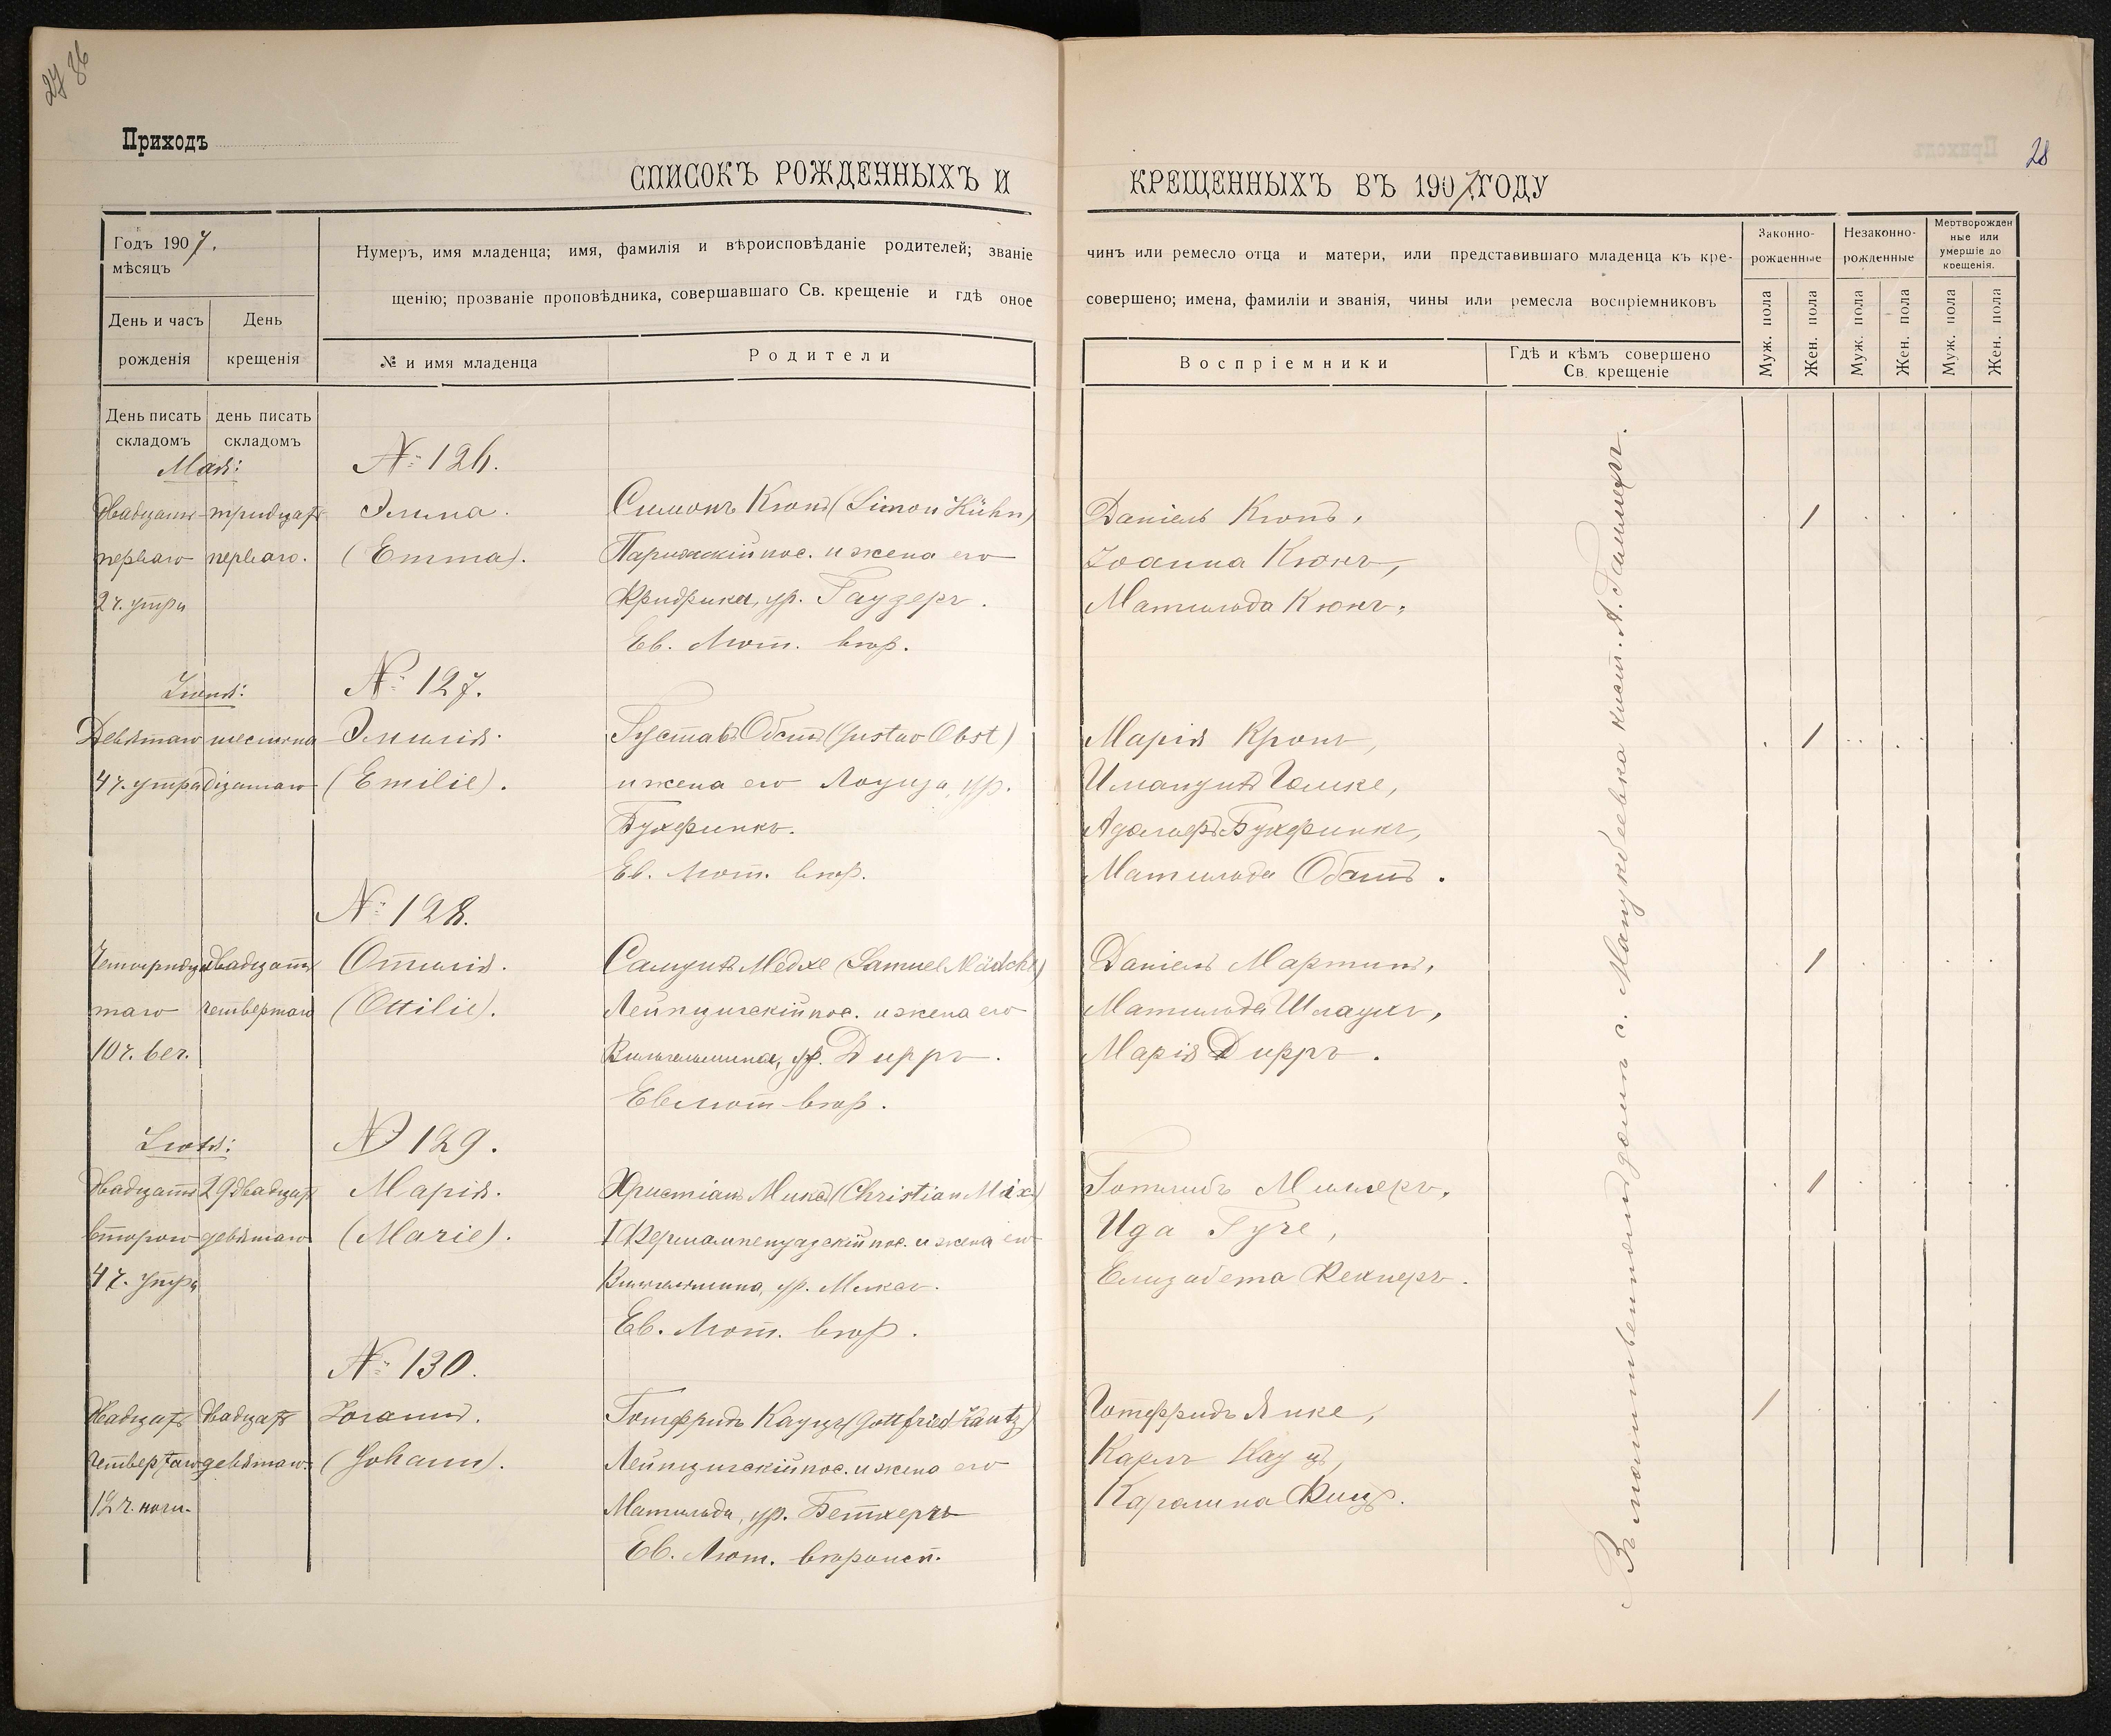 27 86
28
Приходъ
СПИСОКЪ РОЖДЕННЫХЪ И КРЕЩЕННЫХЪ ВЪ 1907 ГОДУ
Годъ 1907.
мѣсяцъ
День и часъ рожденія
День крещенія
Нумеръ, имя младенца; имя, фамилія и вѣроисповѣданіе родителей; званіе
чинъ или ремесло отца и матери, или представившаго младенца къ кре-
щенію; прозваніе проповѣдника, совершавшаго Св. крещеніе и гдѣ оное
совершено; имена, фамиліи и званія, чины или ремесла воспріемниковъ
№ и имя младенца
Родители
Воспріемники
Гдѣ и кѣмъ совершено
Св. крещеніе
Законно-
рожденные
Незаконно-
рожденные
Мертворожден
ные или
умершіе до
крещенія.
Муж. пола
Жен. пола
Муж. пола
Жен. пола
Муж. пола
Жен. пола
День писать складомъ
день писать складомъ
Мая:
№ 126.
Двадцать тридцать Эмма. Симонъ Кюнъ (Simon Kühn) Даніель Кюнъ, 1
перваго перваго. (Emma). Парижскій пос. и жена его Іоанна Кюнъ,
2 ч. утра Фридрика, ур. Гаузеръ. Матильда Кюнъ.
Ев. Лют. вѣр.
Іюня:
№ 127.
Девятаго шестьна Эмилія. Густавъ Обстъ (Gustav Obst) Марія Кронъ, 1
4 ч. утра дцатаго (Emilie). и жена его Лоуиза, ур. Имануилъ Гомке,
Бухфинкъ. Адольфъ Бухфинкъ,
Ев. Лют. вѣр. Матильда Обстъ.
№ 128.
двадцать Оттилія. Самуилъ Медхе (Samuel Mädche) Даніель Мартинъ, 1
таго четвертаго (Ottilie). Лейпцигскій пос. и жена его Матильда Шлаукъ,
10 ч. веч. Вильгельмина, ур. Дирръ. Марія Дирръ.
Ев. Лют. вѣр.
Іюля:
№ 129.
Двадцать 29 двадцать Марія. Христіанъ Миксъ (Christian Mix) Готлибъ Миллеръ, 1
второго девятаго (Marie). I Фершампенуазскій пос. и жена его Ида Гуче,
4 ч. утра Вильгельмина, ур. Елизабета Фехнеръ.
Ев. Лют. вѣр.
№ 130.
Двадцать двадцать Іоганнъ. Готфридъ Кауцъ (Gottfried Kautz) Готфридъ Янке, 1
четвертаго девятаго. (Johann). Лейпцигскій пос. и жена его Карлъ Кауцъ,
12 ч. ночи. Матильда, ур. Бетхеръ
Ев. Лют. вѣроисп.
Въ молитвенномъ домѣ с. Манукбеевка кист. А. Гаммеръ.